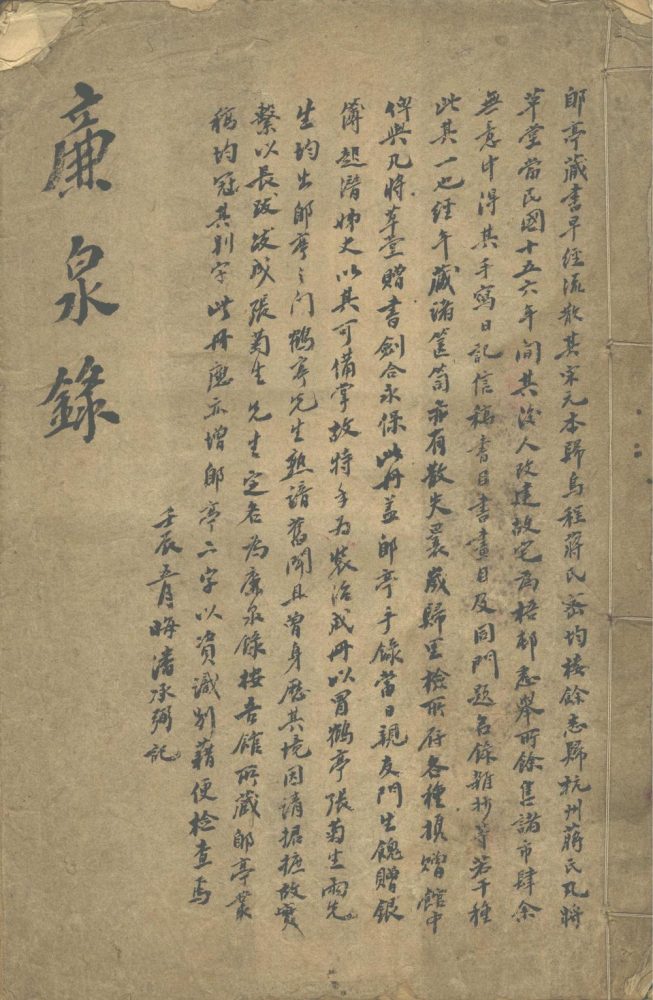 郋亭藏書早經流散其宋元本歸烏程蔣氏密均樓餘悉歸杭州蔣氏凡將
草堂當民國十五六年間其後人改建故宅為梧邨悉舉所餘售諸市肆余
無意中得其手寫日記信稿書目書畫目及同門題名錄雜抄等若干種
此其一也經年藏諸篋笥亦有散失曩歲歸里檢所存各種損贈館中
俾與凡將草堂贈書劍合永保此冊蓋郋亭手錄當日親友門生餽贈銀
簿起潛姊丈以其可備掌故特手為裝治成冊以冒鶴亭張菊生兩先
生均出郋亭之門鶴亭先生熟諳舊聞且曾身歷其境因請捃摭故實
繫以長跋跋成張菊生先生定名為廉泉錄按吾館所藏郋亭叢
稿均冠其別字此冊應亦增郋亭二字以資識別藉便檢查焉
壬辰五月晦潘承弼記
廉泉錄